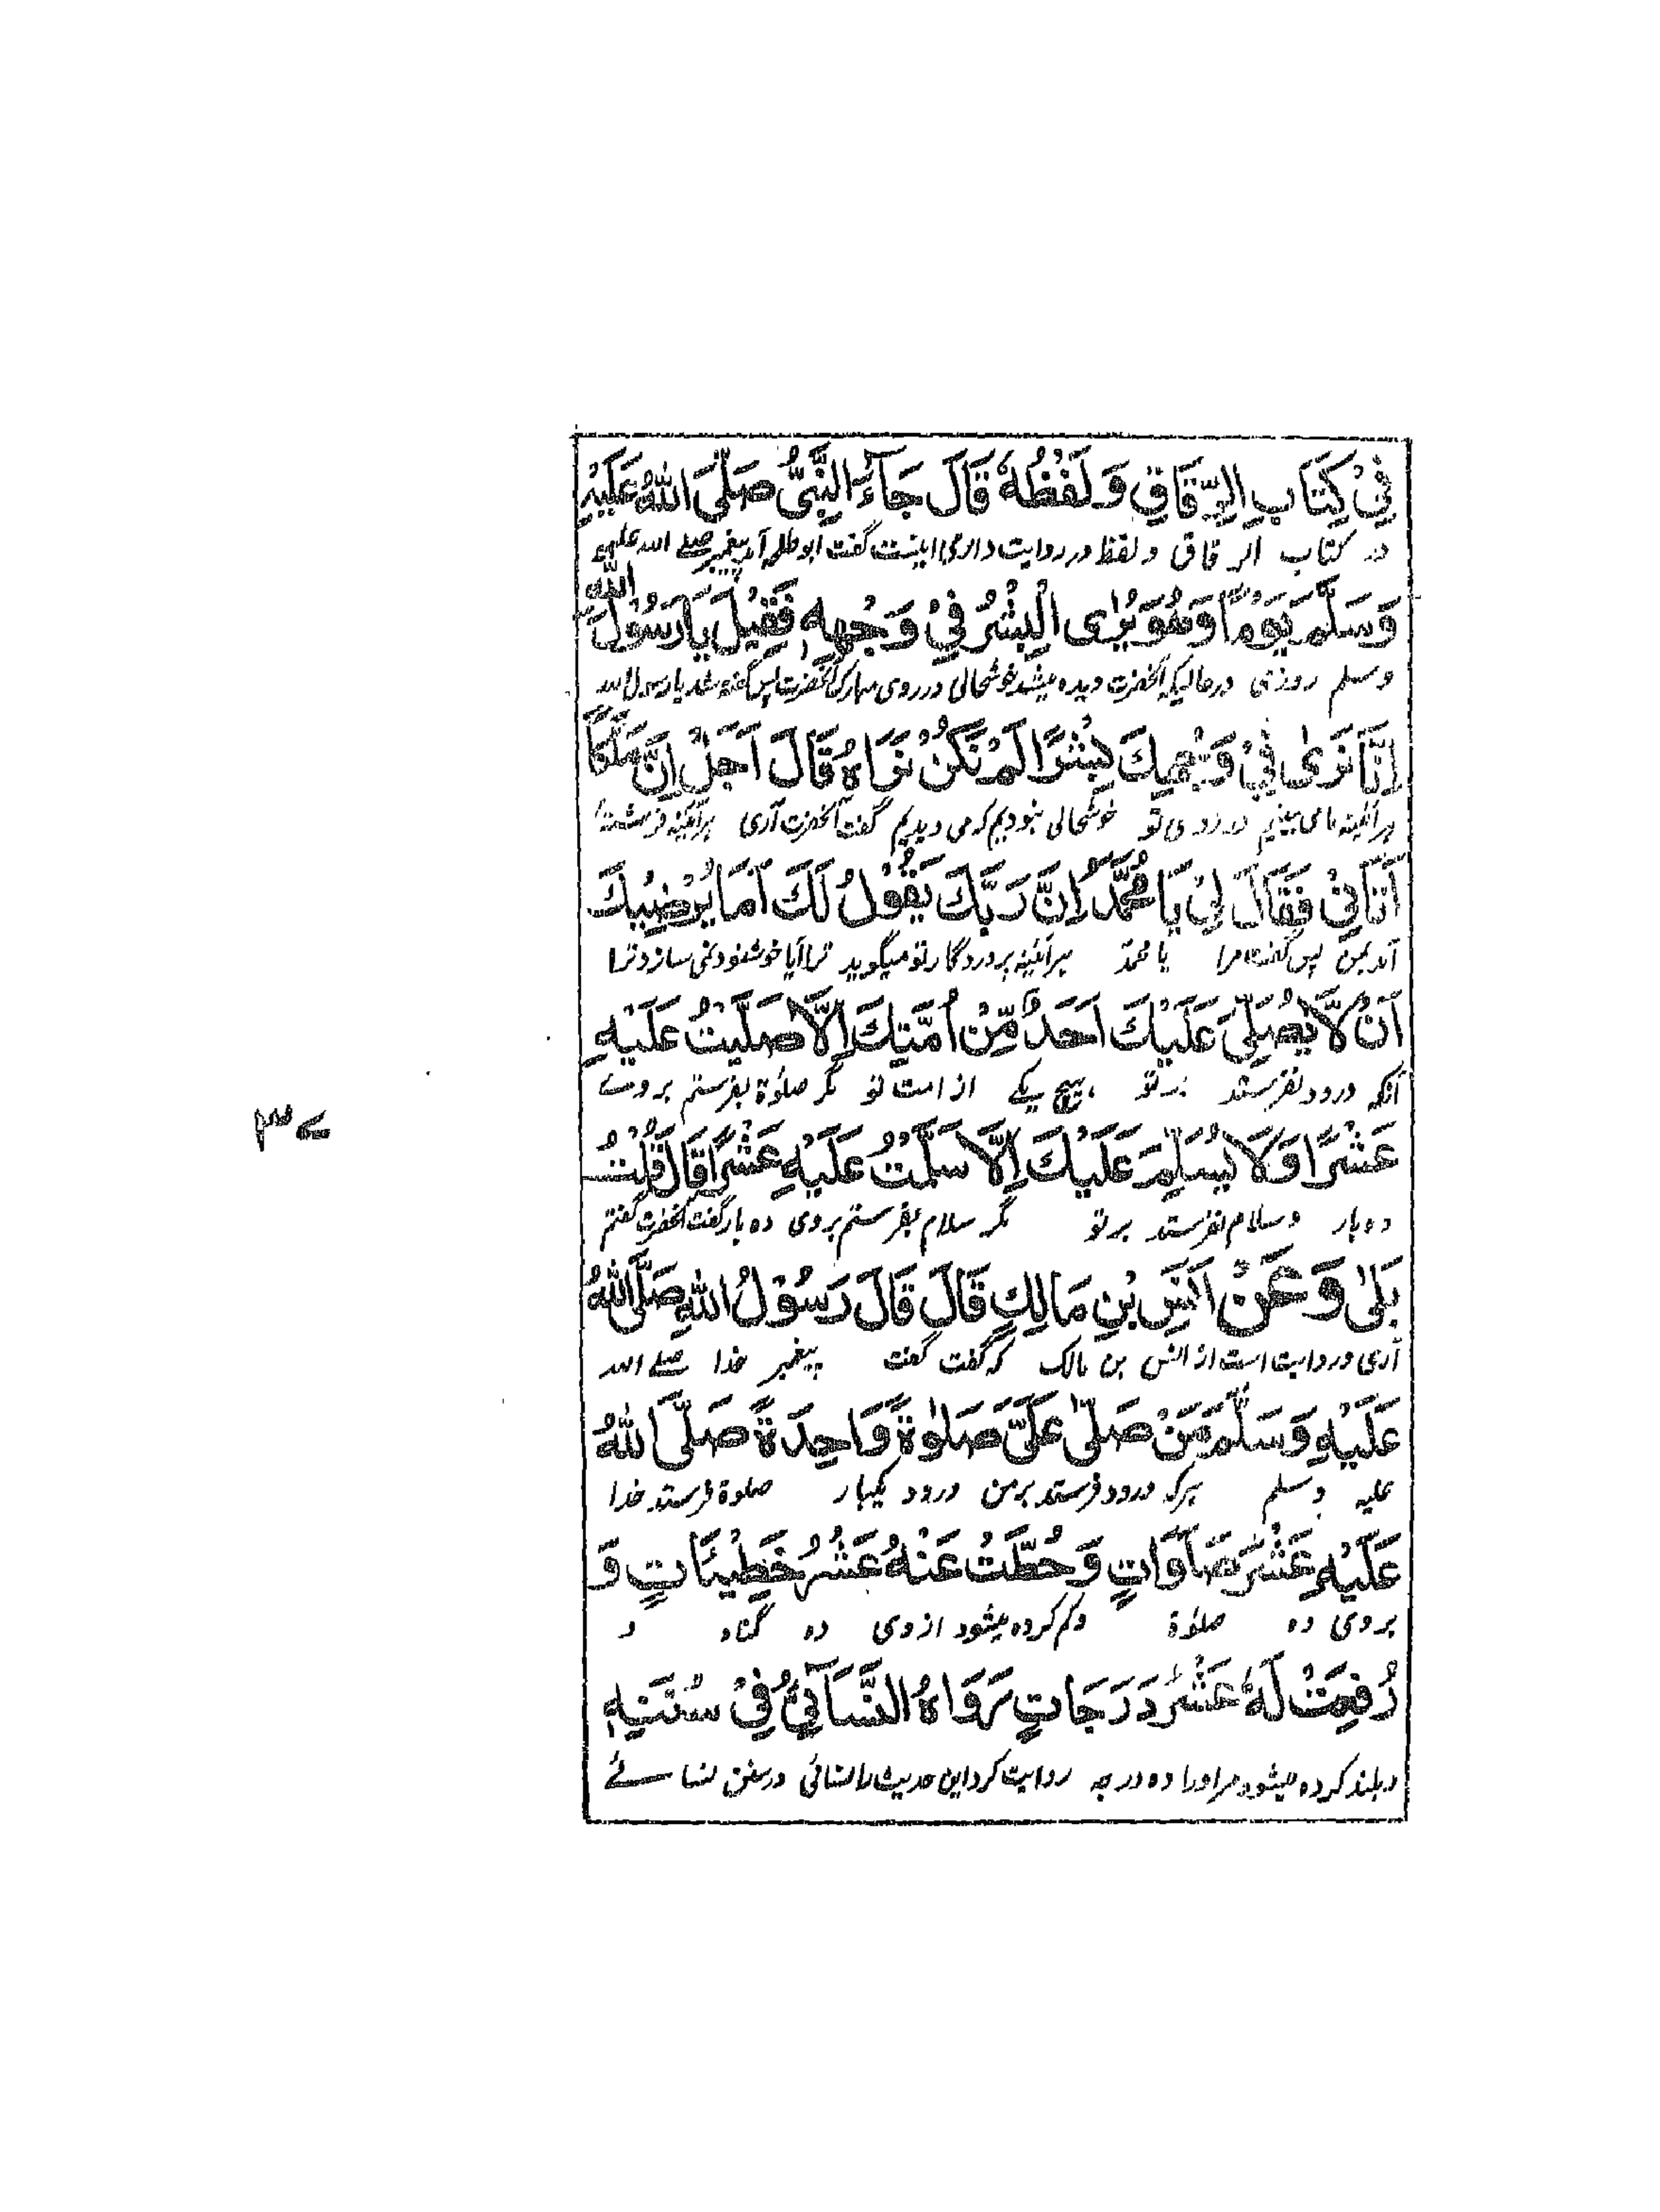 فِيْ كِتَابِ الرِّقَاقِ وَلَفْظُهٗ قَالَ جَآءَ النَّبِيُّ صَلَّى اللهُ عَلَيْهِ
در کتاب الرقاق و لفظ در روایت دارمی اینست گفت ابو طلحه آمد پیغمبر صلے الله علیه
وَسَلَّمَ يَوْمًا وَهُوَ يُرٰى الْبِشْرُ فِيْ وَجْهِهٖ فَقِيْلَ يَا رَسُوْلَ اللهِ
وسلم روزی درحالیکه آنحضرت دیده میشد خوشحالی در روی مبارک آنحضرت پس گفته شد یا رسول الله
اِنَّا نَرٰى فِيْ وَجْهِكَ بِشْرًا لَمْ نَكُنْ نَرَاهُ قَالَ اَجَلْ اِنَّ مَلَكًا
هرآئینه ما می بینیم در روی تو خوشحالی نبودیم که می دیدیم گفت آنحضرت آری هرآئینه فرشتهٔ
اَتَانِيْ فَقَالَ لِيْ يَا مُحَمَّدُ اِنَّ رَبَّكَ يَقُوْلُ لَكَ اَمَا يُرْضِيْكَ
آمد بمن پس گفت مرا یا محمد هرآئینه پروردگار تو میگوید ترا آیا خوشنود نمی سازد ترا
اَنْ لَّا يُصَلِّيَ عَلَيْكَ اَحَدٌ مِّنْ اُمَّتِكَ اِلَّا صَلَّيْتُ عَلَيْهِ
آنکه درود نفرستد بر تو هیچ یکے از امت تو مگر صلوٰة بفرستم بروے
عَشْرًا وَّلَا يُسَلِّمَ عَلَيْكَ اِلَّا سَلَّمْتُ عَلَيْهِ عَشْرًا قَالَ قُلْتُ
ده بار و سلام نفرستد بر تو مگر سلام بفرستم بروی ده بار گفت آنحضرت گفتم
بَلٰى وَعَنْ اَنَسِ بْنِ مَالِكٍ قَالَ قَالَ رَسُوْلُ اللهِ صَلَّى اللهُ
آری و روایت است از انس بن مالک که گفت گفت پیغمبر خدا صلے الله
عَلَيْهِ وَسَلَّمَ مَنْ صَلّٰى عَلَيَّ صَلٰوةً وَّاحِدَةً صَلَّى اللهُ
علیه وسلم هرکه درود فرستد بر من درود یکبار صلوة فرستد خدا
عَلَيْهِ عَشْرَ صَلَوَاتٍ وَحُطَّتْ عَنْهُ عَشْرُ خَطِيْئَاتٍ وَ
بروی ده صلوٰة وکم کرده میشود از وی ده گناه و
رُفِعَتْ لَهٗ عَشْرُ دَرَجَاتٍ رَوَاهُ النَّسَآئِيُّ فِيْ سُنَنِهٖ
و بلند کرده میشود مر او را ده درجه روایت کرد این حدیث را نسائی در سنن نسائے
۳۷